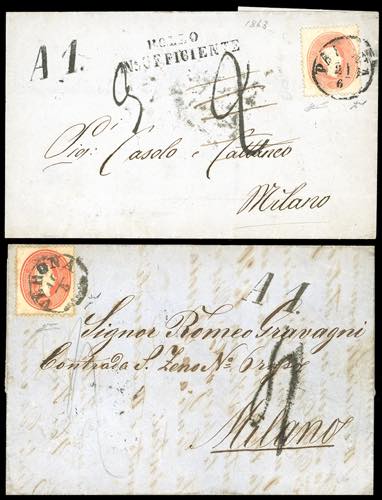 1863
A 1.
BOLLO
INSUFFICIENTE
21
6
2
Sig: Casolo e Cattaneo
Milano
VERONA
A 1
Signor Romeo Gravagni
Contrada S. Zeno No
Milano